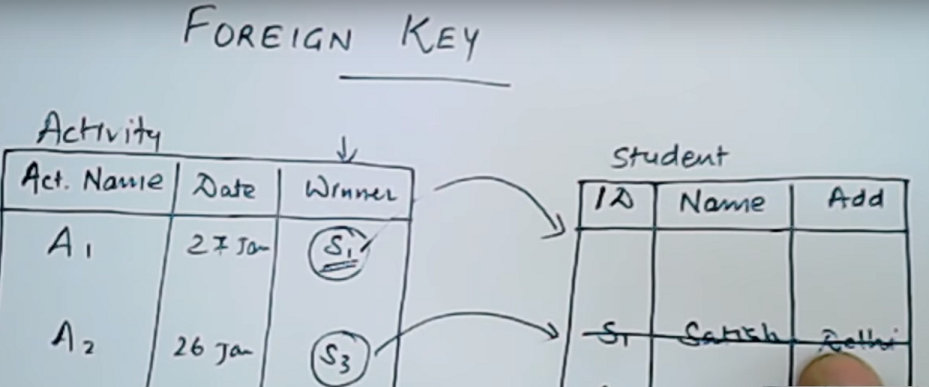 FOREIGN KEY
Activity
Act. Name Date Winner
A1 27 Jan S1
A2 26 Jan S3
Student
ID Name Add
S1 Satish Delhi